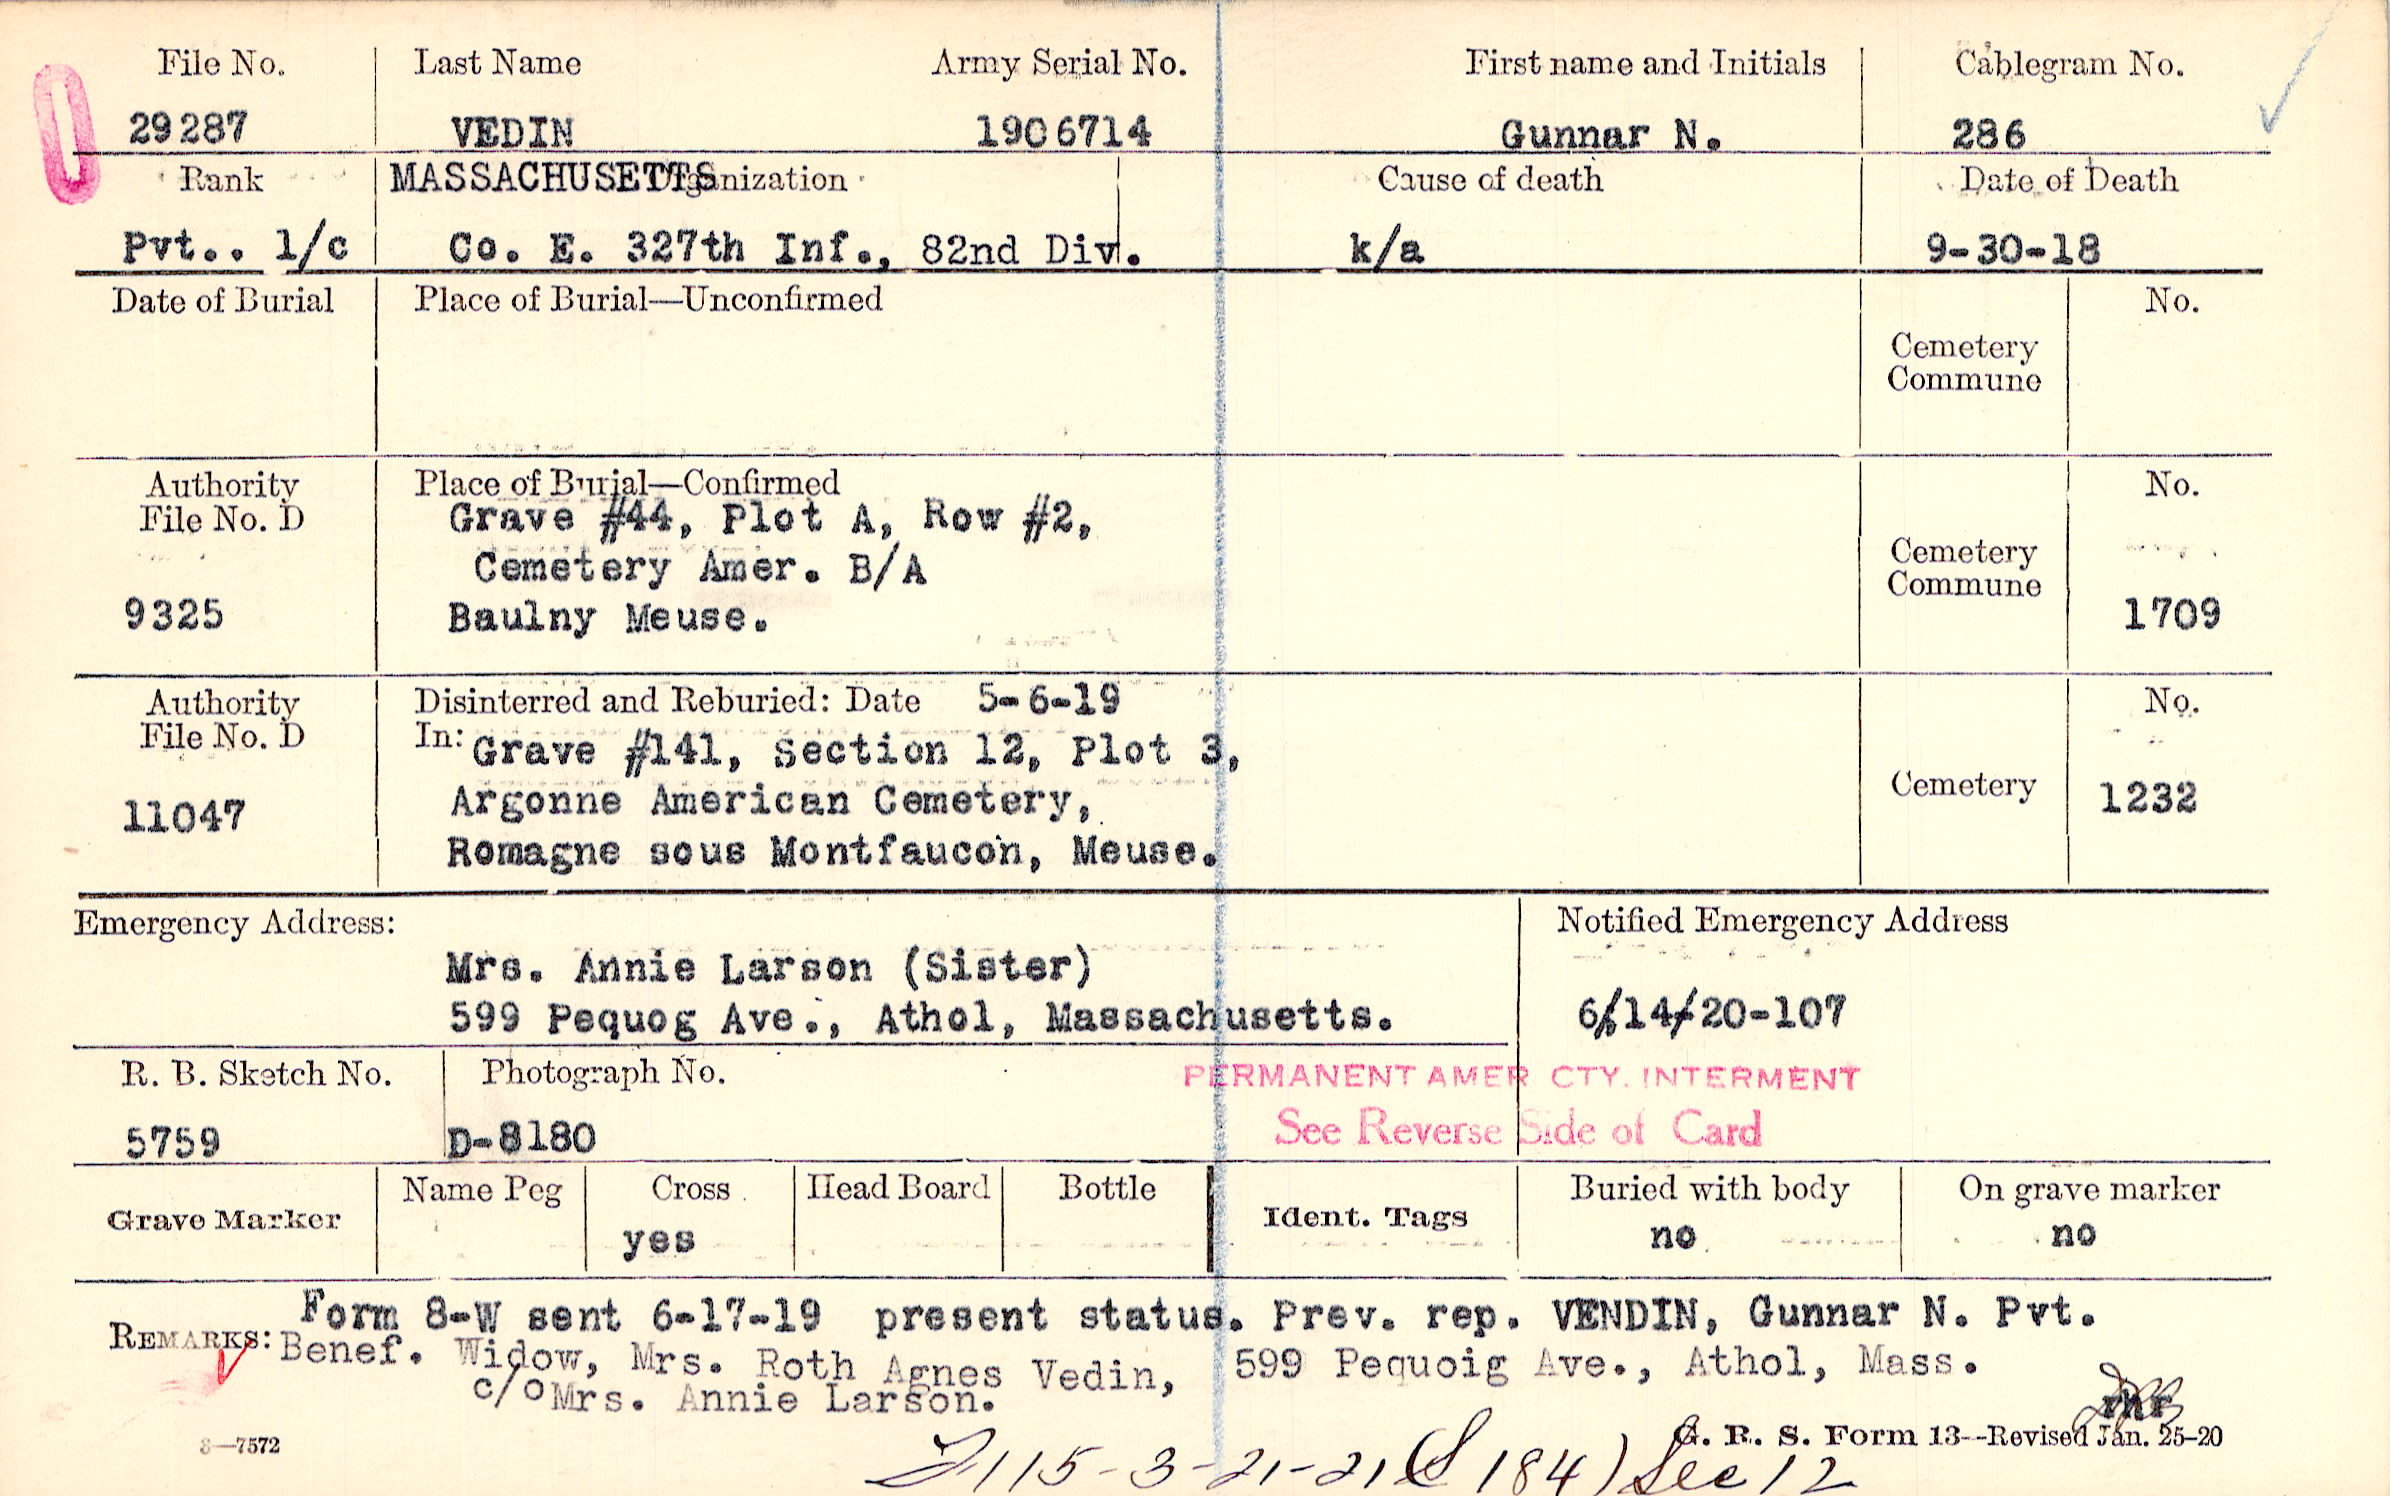 File No. Last Name Army Serial No. First name and Initials Cablegram No.
29287 VEDIN 1906714 Gunnar N. 286
Rank MASSACHUSETTS Organization Cause of death Date of Death
Pvt.. 1/c Co. E. 327th Inf., 82nd Div. k/a 9-30-18
Date of Burial Place of Burial—Unconfirmed No.
Cemetery
Commune
Authority Place of Burial—Confirmed No.
File No. D Grave #44, Plot A, Row #2,
Cemetery Amer. B/A Cemetery
Commune
9325 Baulny Meuse. 1709
Authority Disinterred and Reburied: Date 5-6-19 No.
File No. D In: Grave #141, Section 12, Plot 3,
11047 Argonne American Cemetery, Cemetery 1232
Romagne sous Montfaucon, Meuse.
Emergency Address: Notified Emergency Address
Mrs. Annie Larson (Sister)
599 Pequog Ave., Athol, Massachusetts. 6/14/20-107
R. B. Sketch No. Photograph No. PERMANENT AMER CTY. INTERMENT
5759 D-8180 See Reverse Side of Card
Grave Marker Name Peg Cross Head Board Bottle Ident. Tags Buried with body On grave marker
yes no no
REMARKS: Form 8-W sent 6-17-19 present status. Prev. rep. VENDIN, Gunnar N. Pvt.
Benef. Widow, Mrs. Roth Agnes Vedin, 599 Pequoig Ave., Athol, Mass.
c/o Mrs. Annie Larson.
3—7572 G. R. S. Form 13--Revised Jan. 25-20
115-3-21-21 (S 184) Sec 12